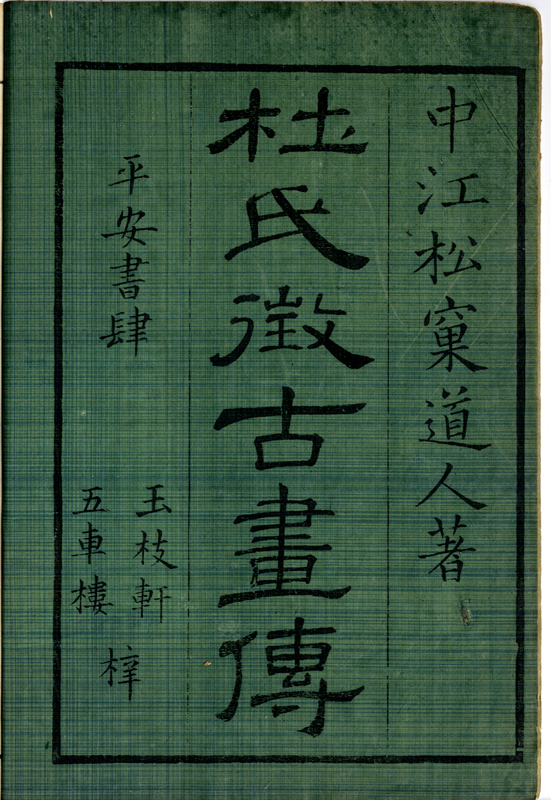 中江松窠道人著
杜氏徵古畫傳
平安書肆
玉枝軒
五車樓
梓